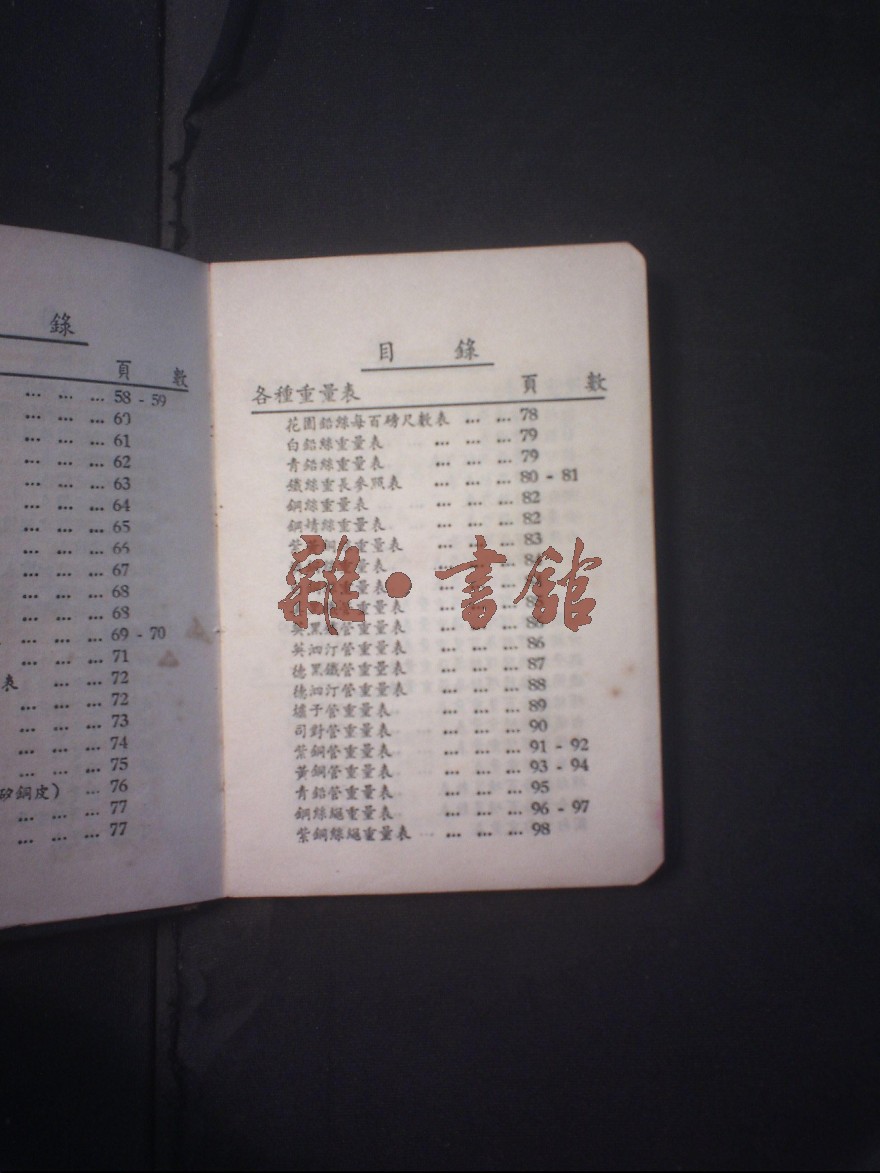 錄
頁 數
... ... ... 58 - 59
... ... ... 60
... ... ... 61
... ... ... 62
... ... ... 63
... ... ... 64
... ... ... 65
... ... ... 66
... ... ... 67
... ... ... 68
... ... ... 68
... ... ... 69 - 70
... ... ... 71
表 ... ... 72
... ... ... 72
... ... ... 73
... ... ... 74
... ... ... 75
矽鋼皮) ... 76
... ... ... 77
... ... ... 77
目 錄
各種重量表 頁 數
花園鉛絲每百磅尺數表 ... ... 78
白鉛絲重量表 ... ... ... 79
青鉛絲重量表 ... ... ... 79
鐵絲重長參照表 ... ... ... 80 - 81
鋼絲重量表 ... ... ... 82
重量表 ... ... ... 82
重量表 ... ... ... 83
雜·書館
管重量表 ... ... ...
英泗汀管重量表 ... ... ... 86
德黑鐵管重量表 ... ... ... 87
德泗汀管重量表 ... ... ... 88
爐子管重量表 ... ... ... 89
司對管重量表 ... ... ... 90
紫銅管重量表 ... ... ... 91 - 92
黃銅管重量表 ... ... ... 93 - 94
青鉛管重量表 ... ... ... 95
鋼絲繩重量表 ... ... ... 96 - 97
紫銅絲繩重量表 ... ... ... 98